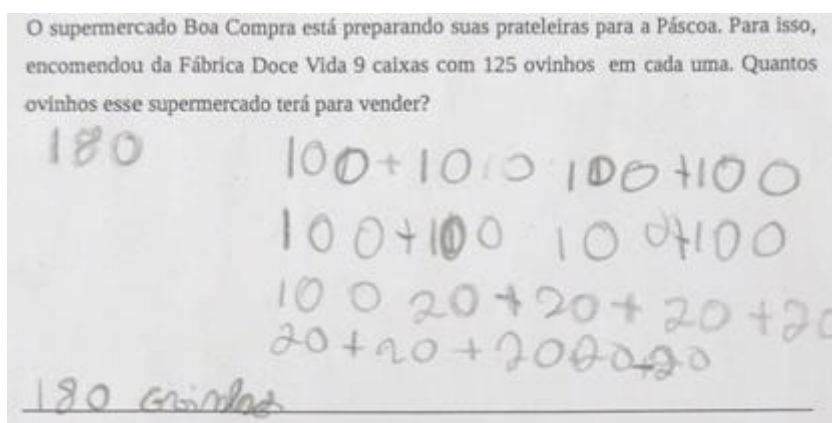 O supermercado Boa Compra está preparando suas prateleiras para a Páscoa. Para isso,
encomendou da Fábrica Doce Vida 9 caixas com 125 ovinhos em cada uma. Quantos
ovinhos esse supermercado terá para vender?
180 100+100 100+100
100+100 100+100
100 20+20+20+20
20+20+2020+20
180 ovinhos